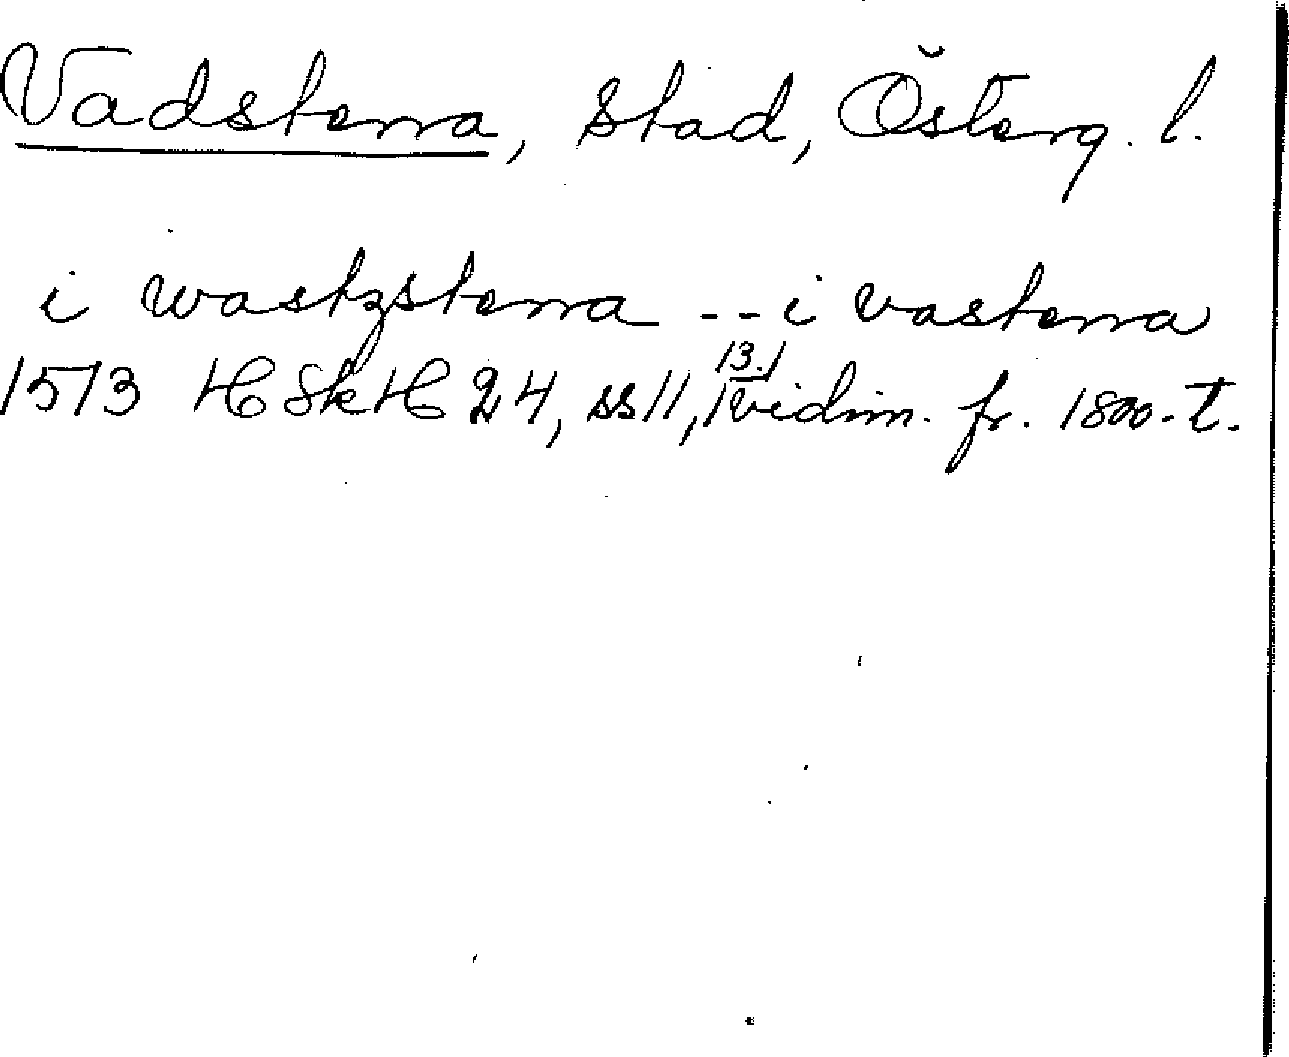 Vadstena, stad, Österg. l.
i wastzstena -- i vastena
1573 HSkH 24, ss 11, 13. vidim. fr. 1800-t.